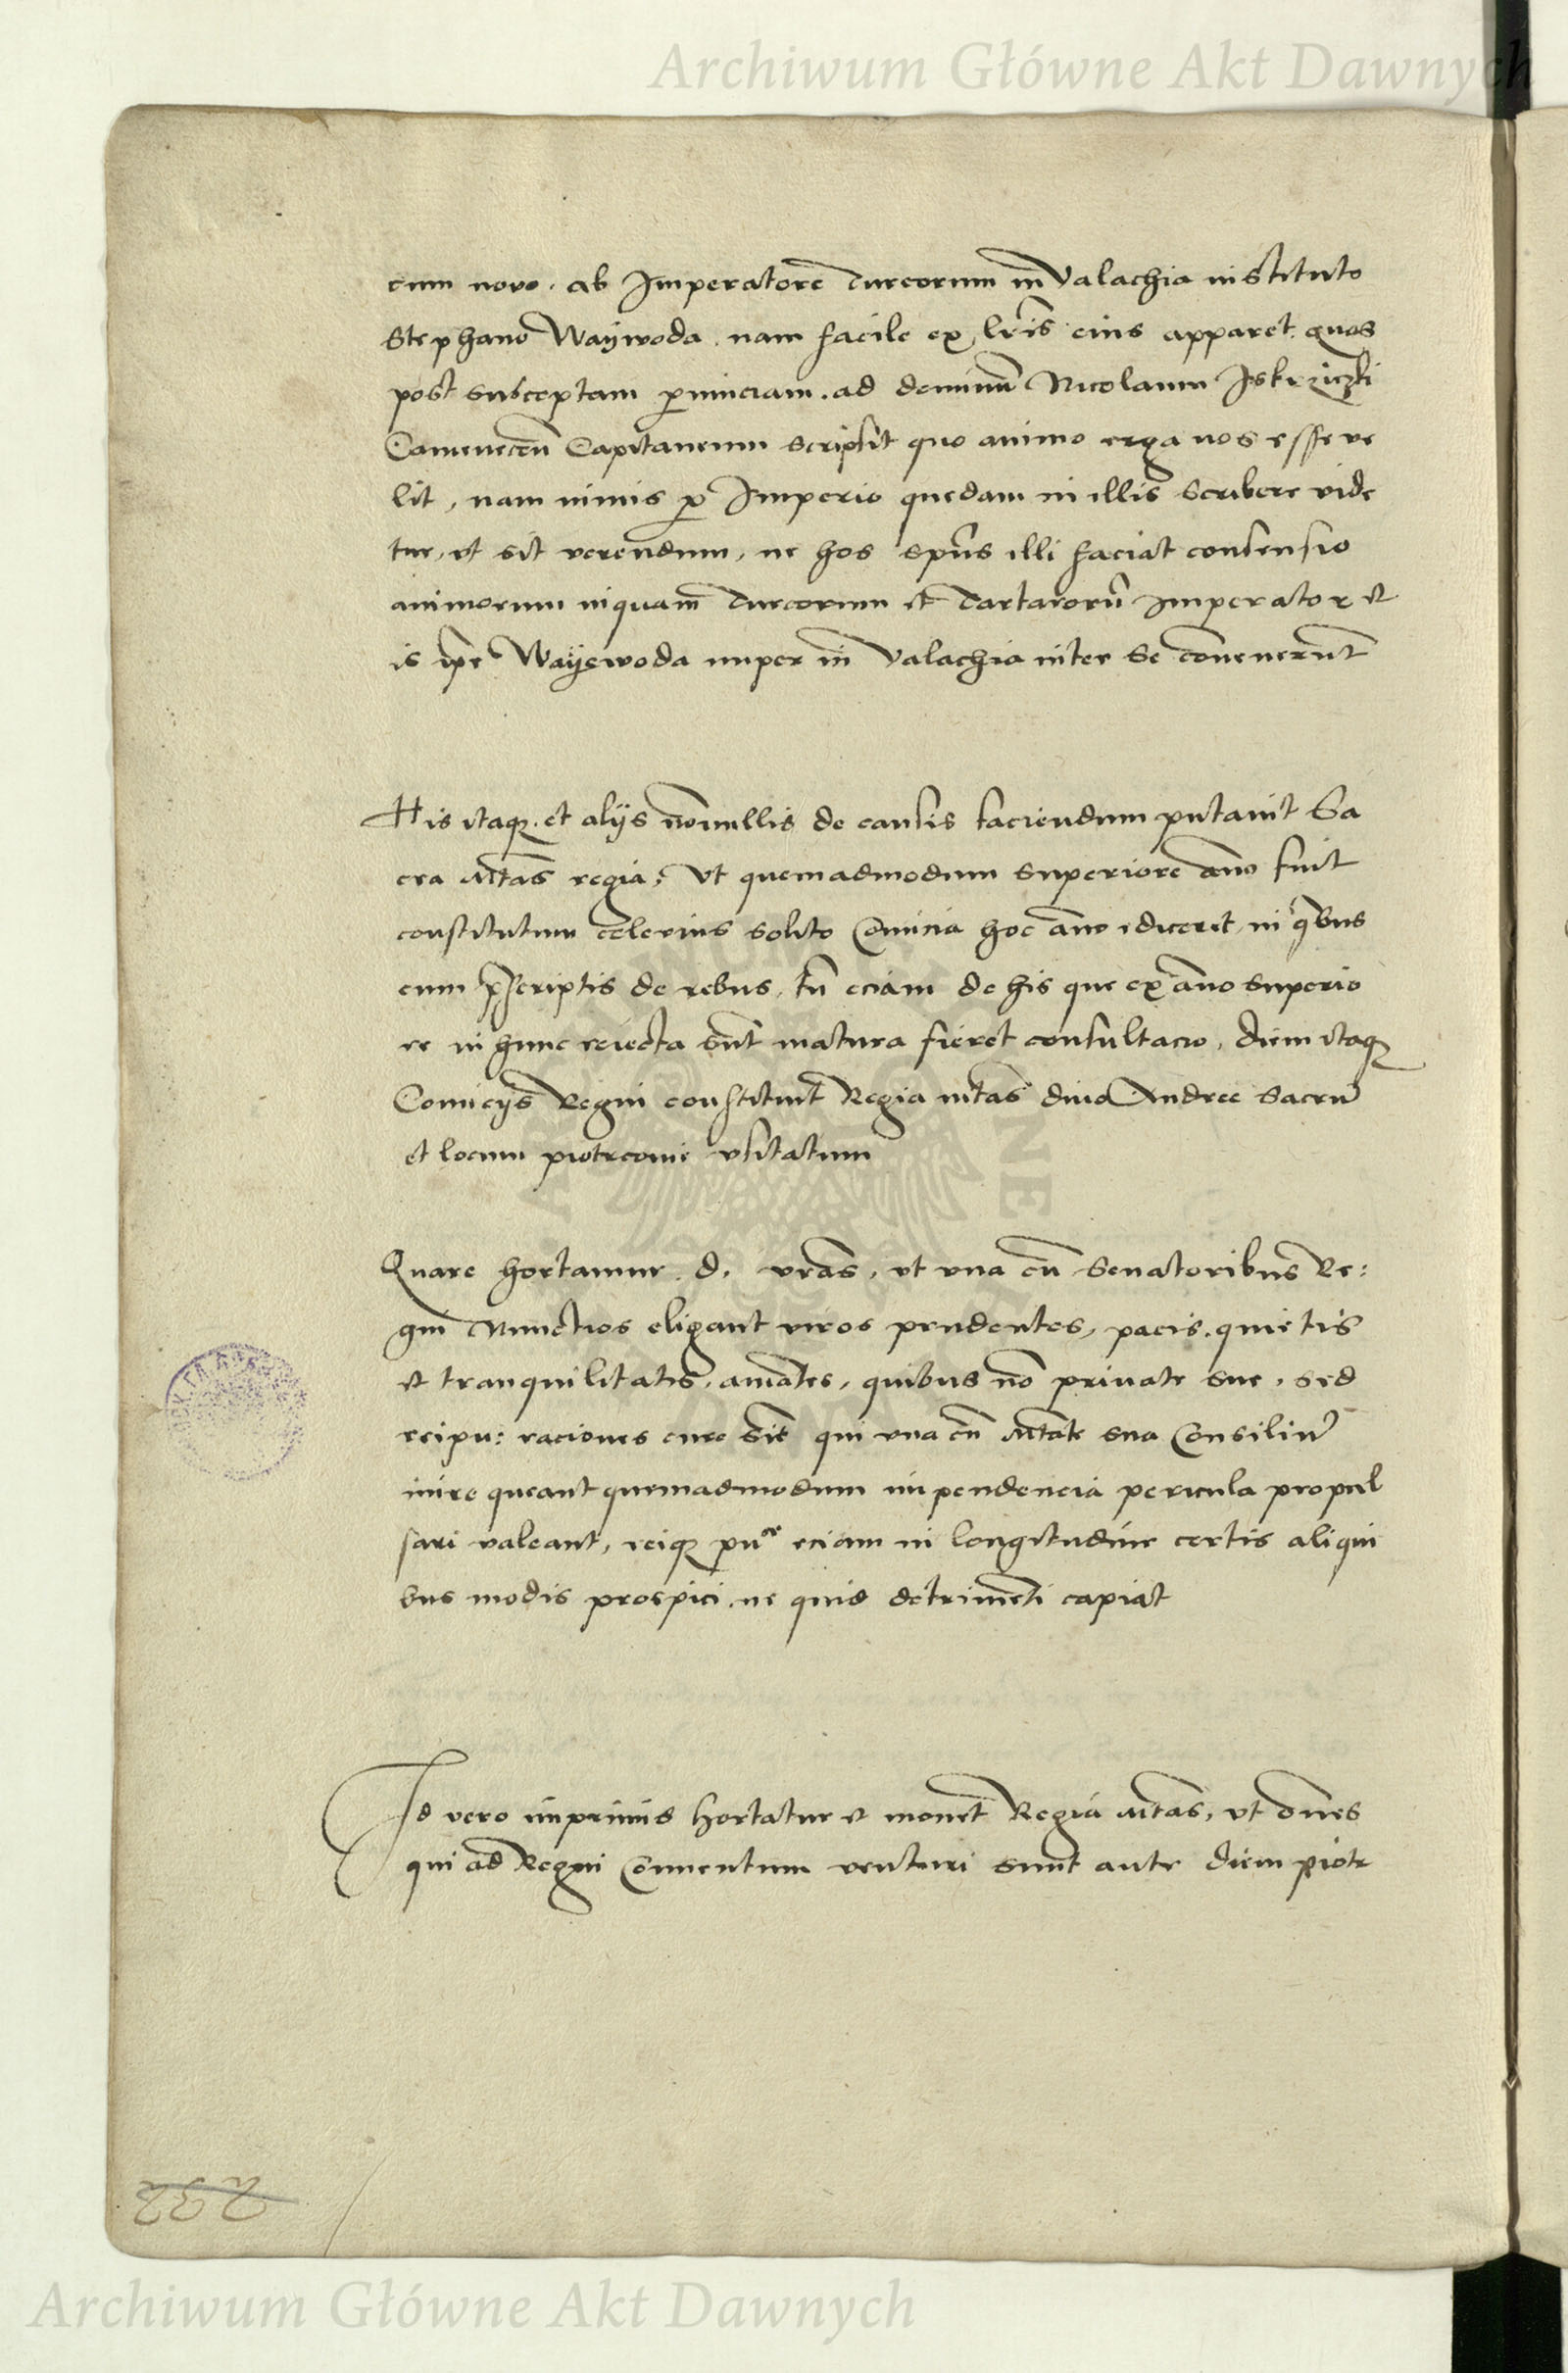 Archiwum Główne Akt Dawnych
cum novo. ab Imperatore Turcorum in Valachia instituto
Stephano Waywoda. nam facile ex lris eius apparet. quas
post susceptam provinciam. ad dominum Nicolaum Iskrziczki
Camenecen Capitaneum scripsit quo animo erga nos esse ve
lit, nam nimis pro Imperio quedam in illis scribere vide
tur, ut sit verendum, ne hos spus illi faciat consensio
animorum in quam Turcorum et Tartarorum Imperator et
is ipse Wayewoda nuper in Valachia inter se convenerunt
His itaque. et alijs nonnullis de causis faciendum putavit Sa
cra Mtas regia, ut quemadmodum superiore anno fuit
constitutum celerius solito Comicia hoc anno ediceret, in quibus
cum prescriptis de rebus, tum eciam de his que ex anno superio
re in hunc reiecta sunt matura fieret consultacio, diem itaque
Comicijs Regni constituit Regia mtas divo Andree sacrum
et locum piotrcovie usitatum
Quare hortamur. d. vras, ut una cum Senatoribus Re:
gni Nunctios eligant viros prudentes, pacis. quietis
et tranquilitatis, amantes, quibus non private sue, sed
reipu: raciones cure sint qui una cum Mtate sua Consilium
inire queant quemadmodum impendencia pericula propul
sari valeant, reique puce eciam in longitudine certis aliqui
bus modis prospici. ne quid detrimenti capiat
Id vero imprimis hortatur et monet Regia Mtas, ut omnes
qui ad Regni Conventum venturi sunt ante diem piotr
232
Archiwum Główne Akt Dawnych